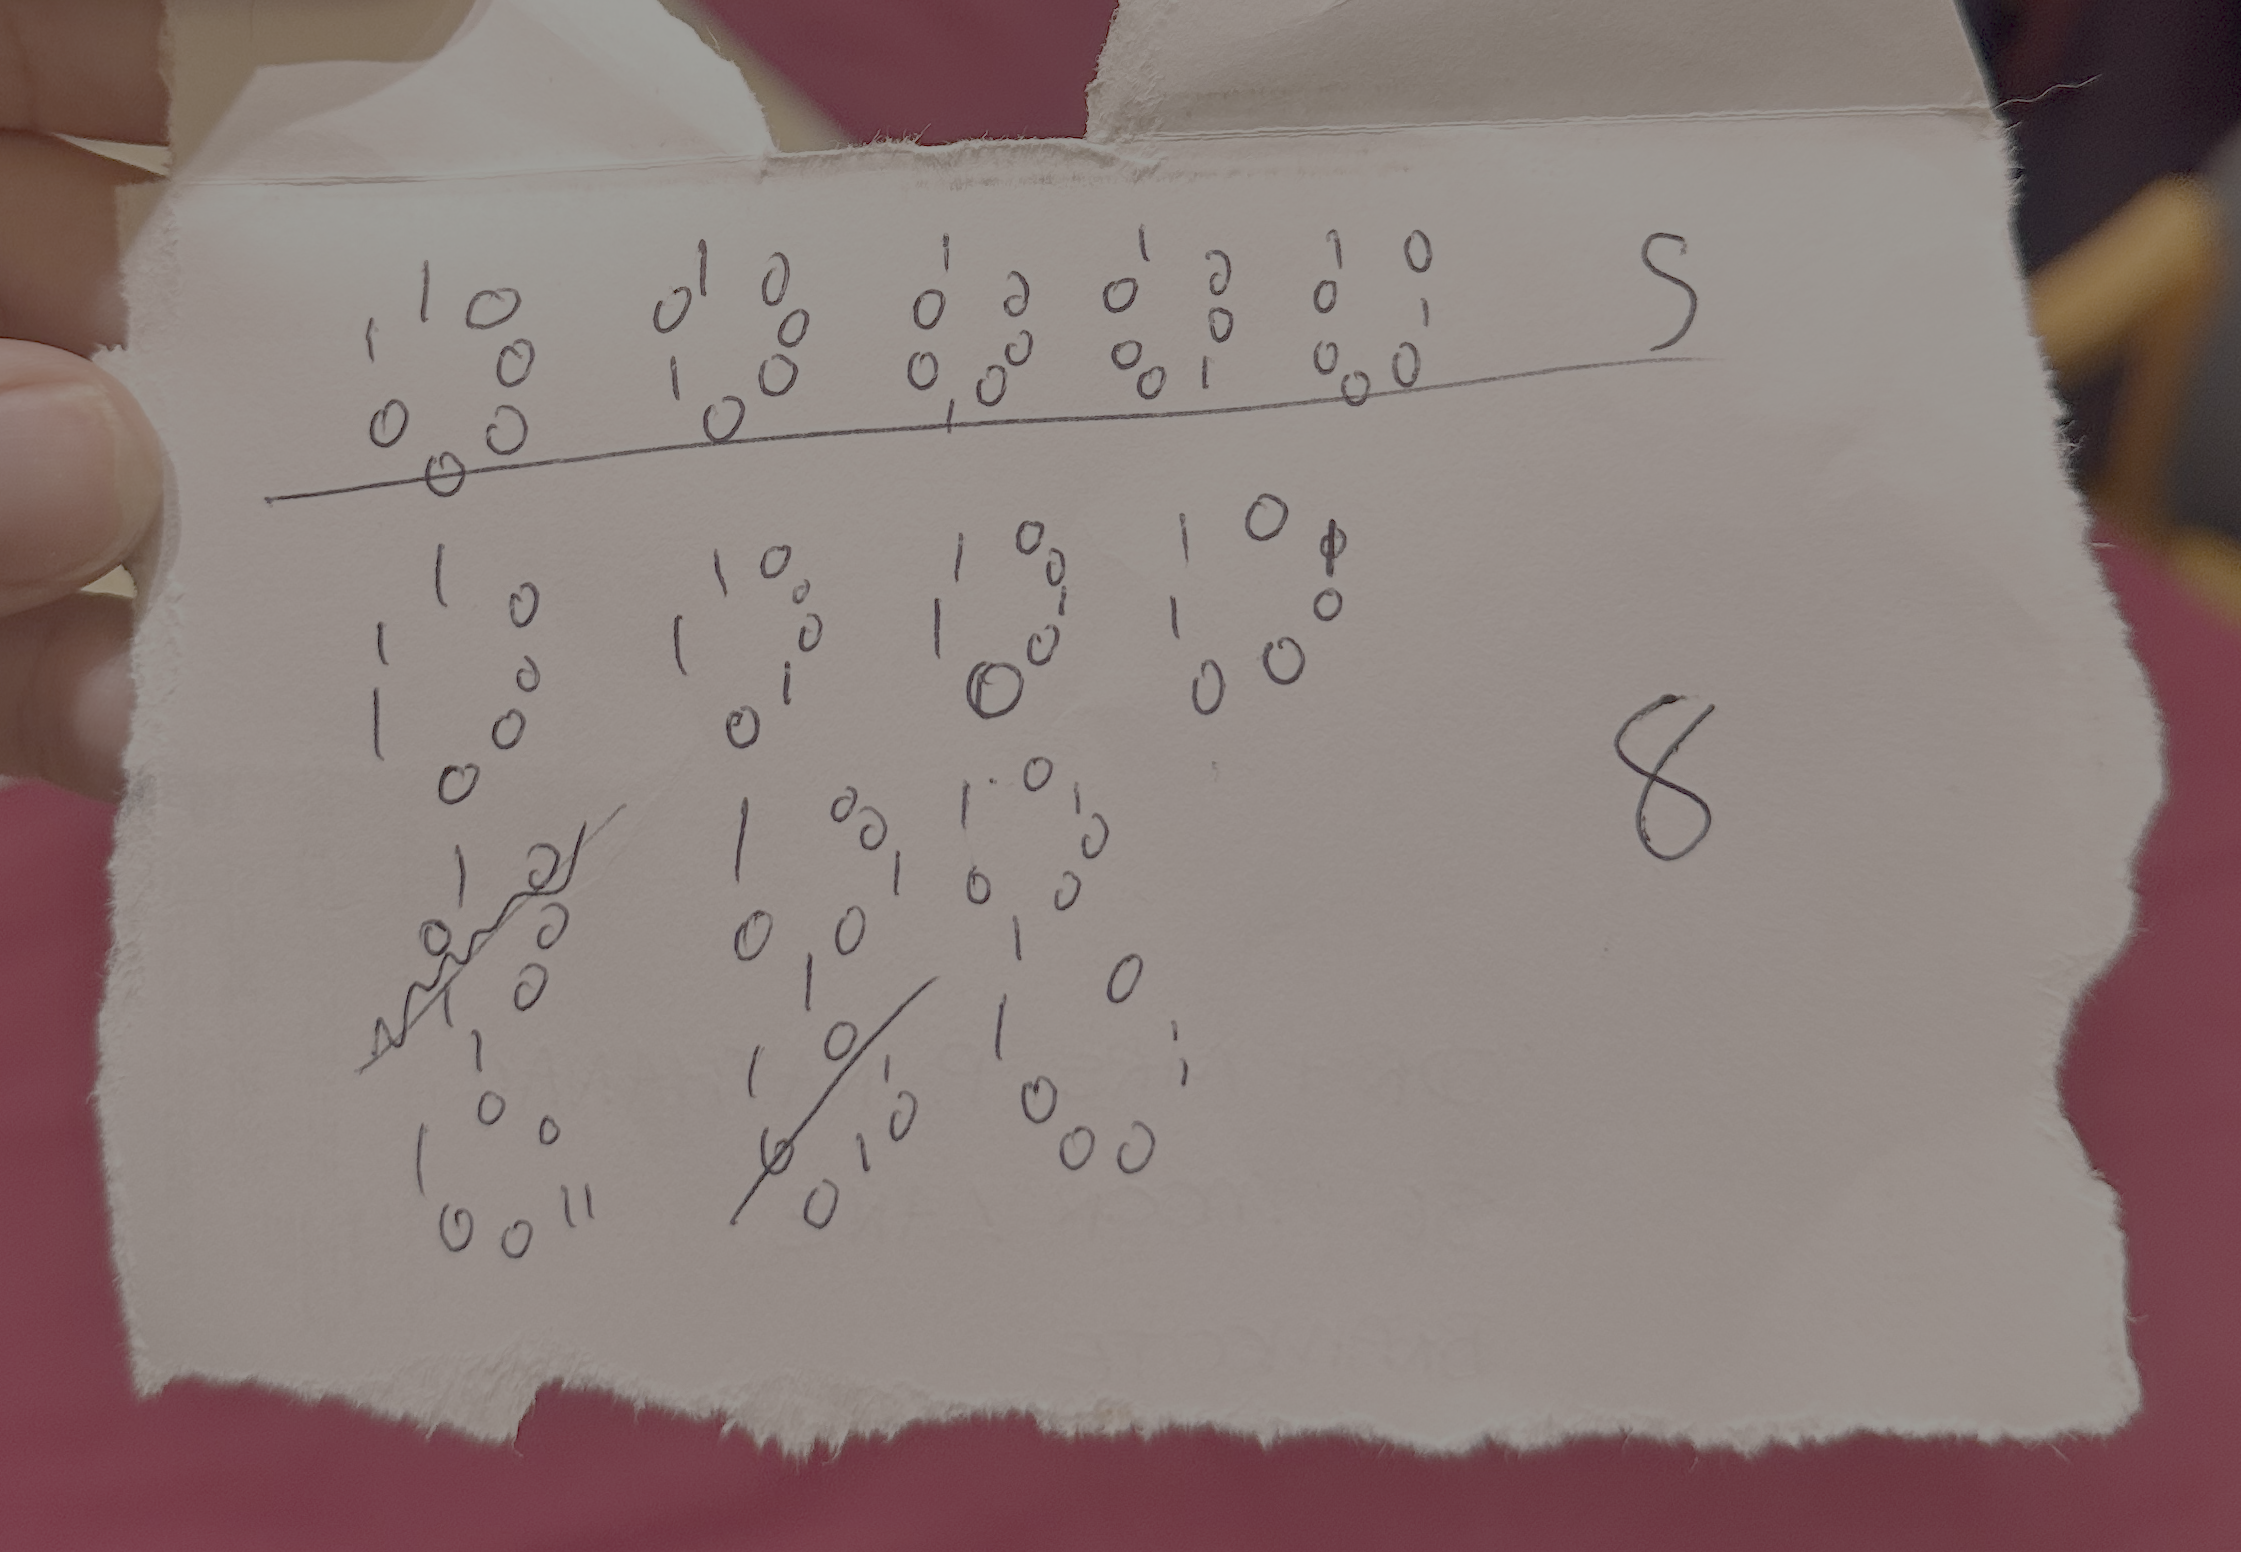 1 0 1 0 1 1 1 0
1 0 0 0 0 0 0 0 0 1
0 0 1 0 0 0 0 0 0 0
0 0 0 1 0 0 1 0 5
1 0 1 0 1 0 1 0
1 0 1 0 0 1 1 0 1 0
1 0 0 1 0 0 0 0
0 8
1 0 1 0 0 1 0 1
0 0 0 1 0 0 0
0 1 0 0 1 1
1 0 0 1 0 1 0 1
1 0 0 1 0 1 1 0 0 0
0 0 1 1 0